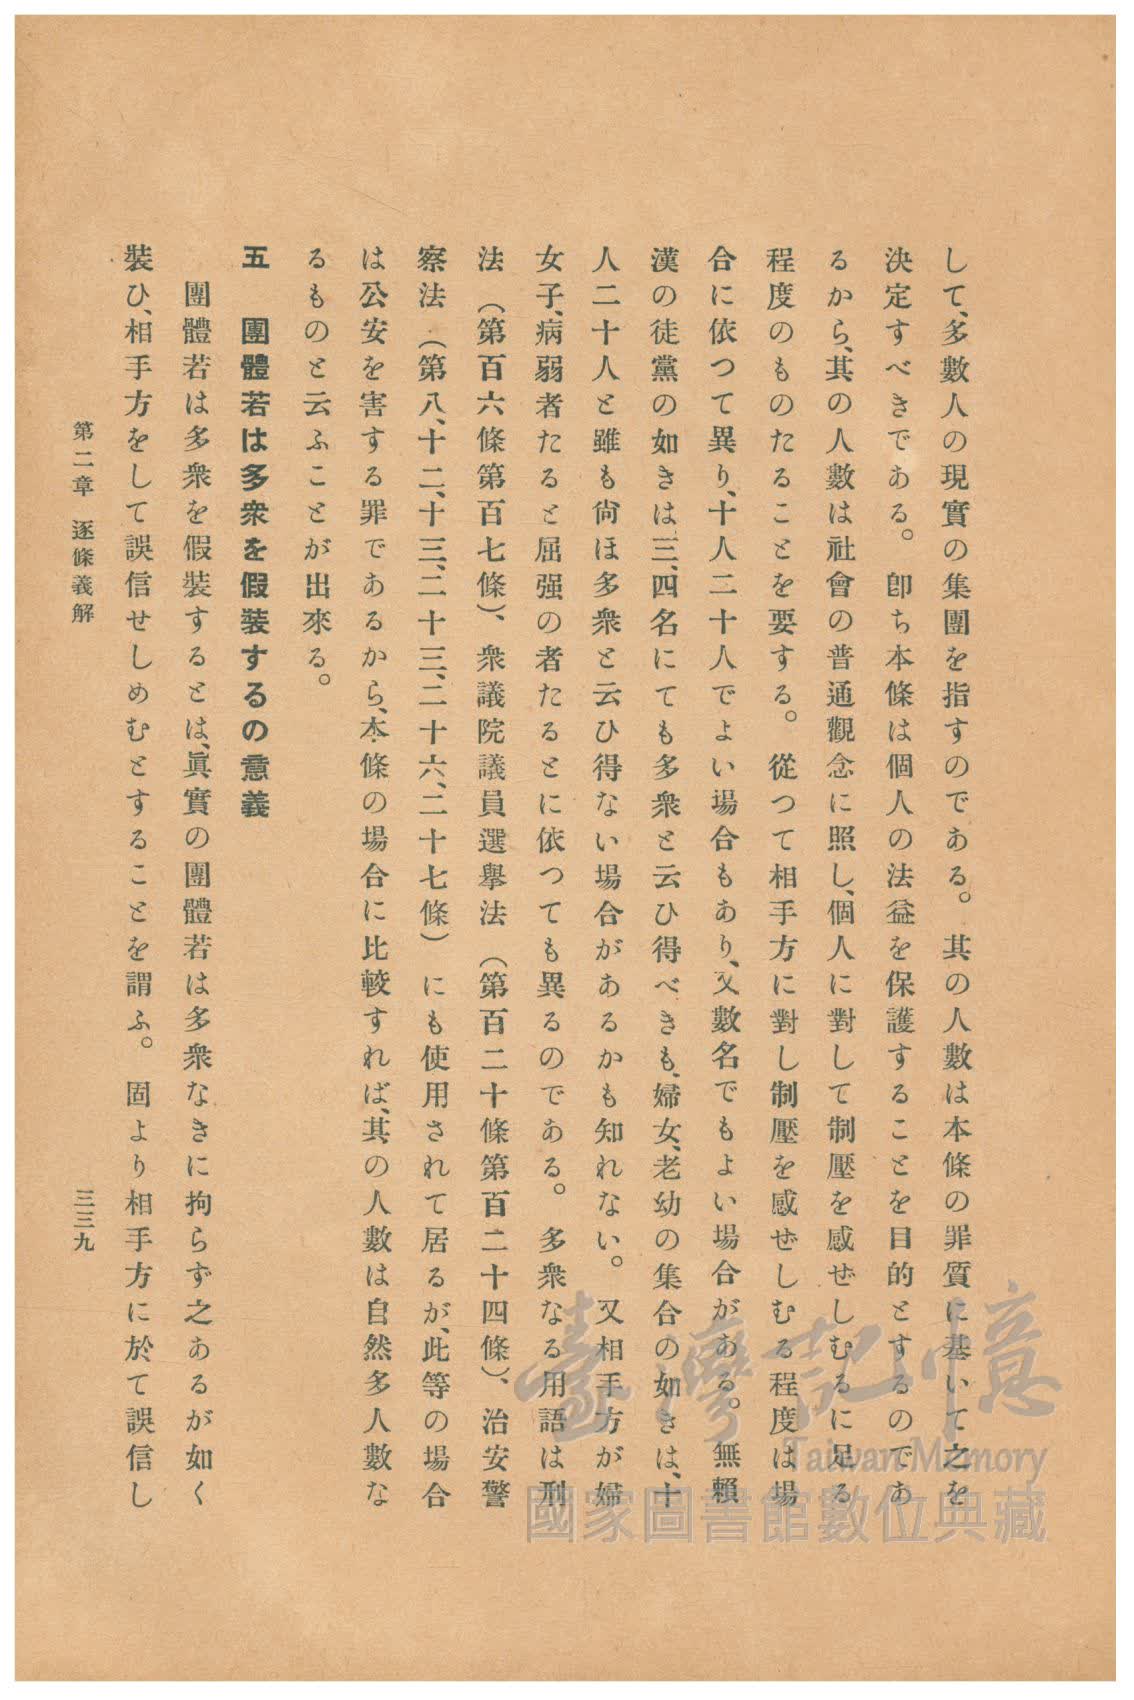 して、多數人の現實の集團を指すのである。其の人數は本條の罪質に基いて之を
決定すべきである。卽ち本條は個人の法益を保護することを目的とするのであ
るから、其の人數は社會の普通觀念に照し、個人に對して制壓を感ぜしむるに足る
程度のものたることを要する。從つて相手方に對し制壓を感ぜしむる程度は場
合に依つて異り、十人二十人でよい場合もあり、又數名でもよい場合がある。無賴
漢の徒黨の如きは三、四名にても多衆と云ひ得べきも、婦女、老幼の集合の如きは、十
人二十人と雖も尙ほ多衆と云ひ得ない場合があるかも知れない。又相手方が婦
女子、病弱者たると屈强の者たるとに依つても異るのである。多衆なる用語は刑
法（第百六條第百七條）、衆議院議員選擧法（第百二十條第百二十四條）、治安警
察法（第八、十二、十三、二十三、二十六、二十七條）にも使用されて居るが、此等の場合
は公安を害する罪であるから、本條の場合に比較すれば、其の人數は自然多人數な
るものと云ふことが出來る。
五　團體若は多衆を假裝するの意義
團體若は多衆を假裝するとは、眞實の團體若は多衆なきに拘らず之あるが如く
裝ひ、相手方をして誤信せしめむとすることを謂ふ。固より相手方に於て誤信し
第二章　逐條義解　三三九
臺灣記憶
Taiwan Memory
國家圖書館數位典藏